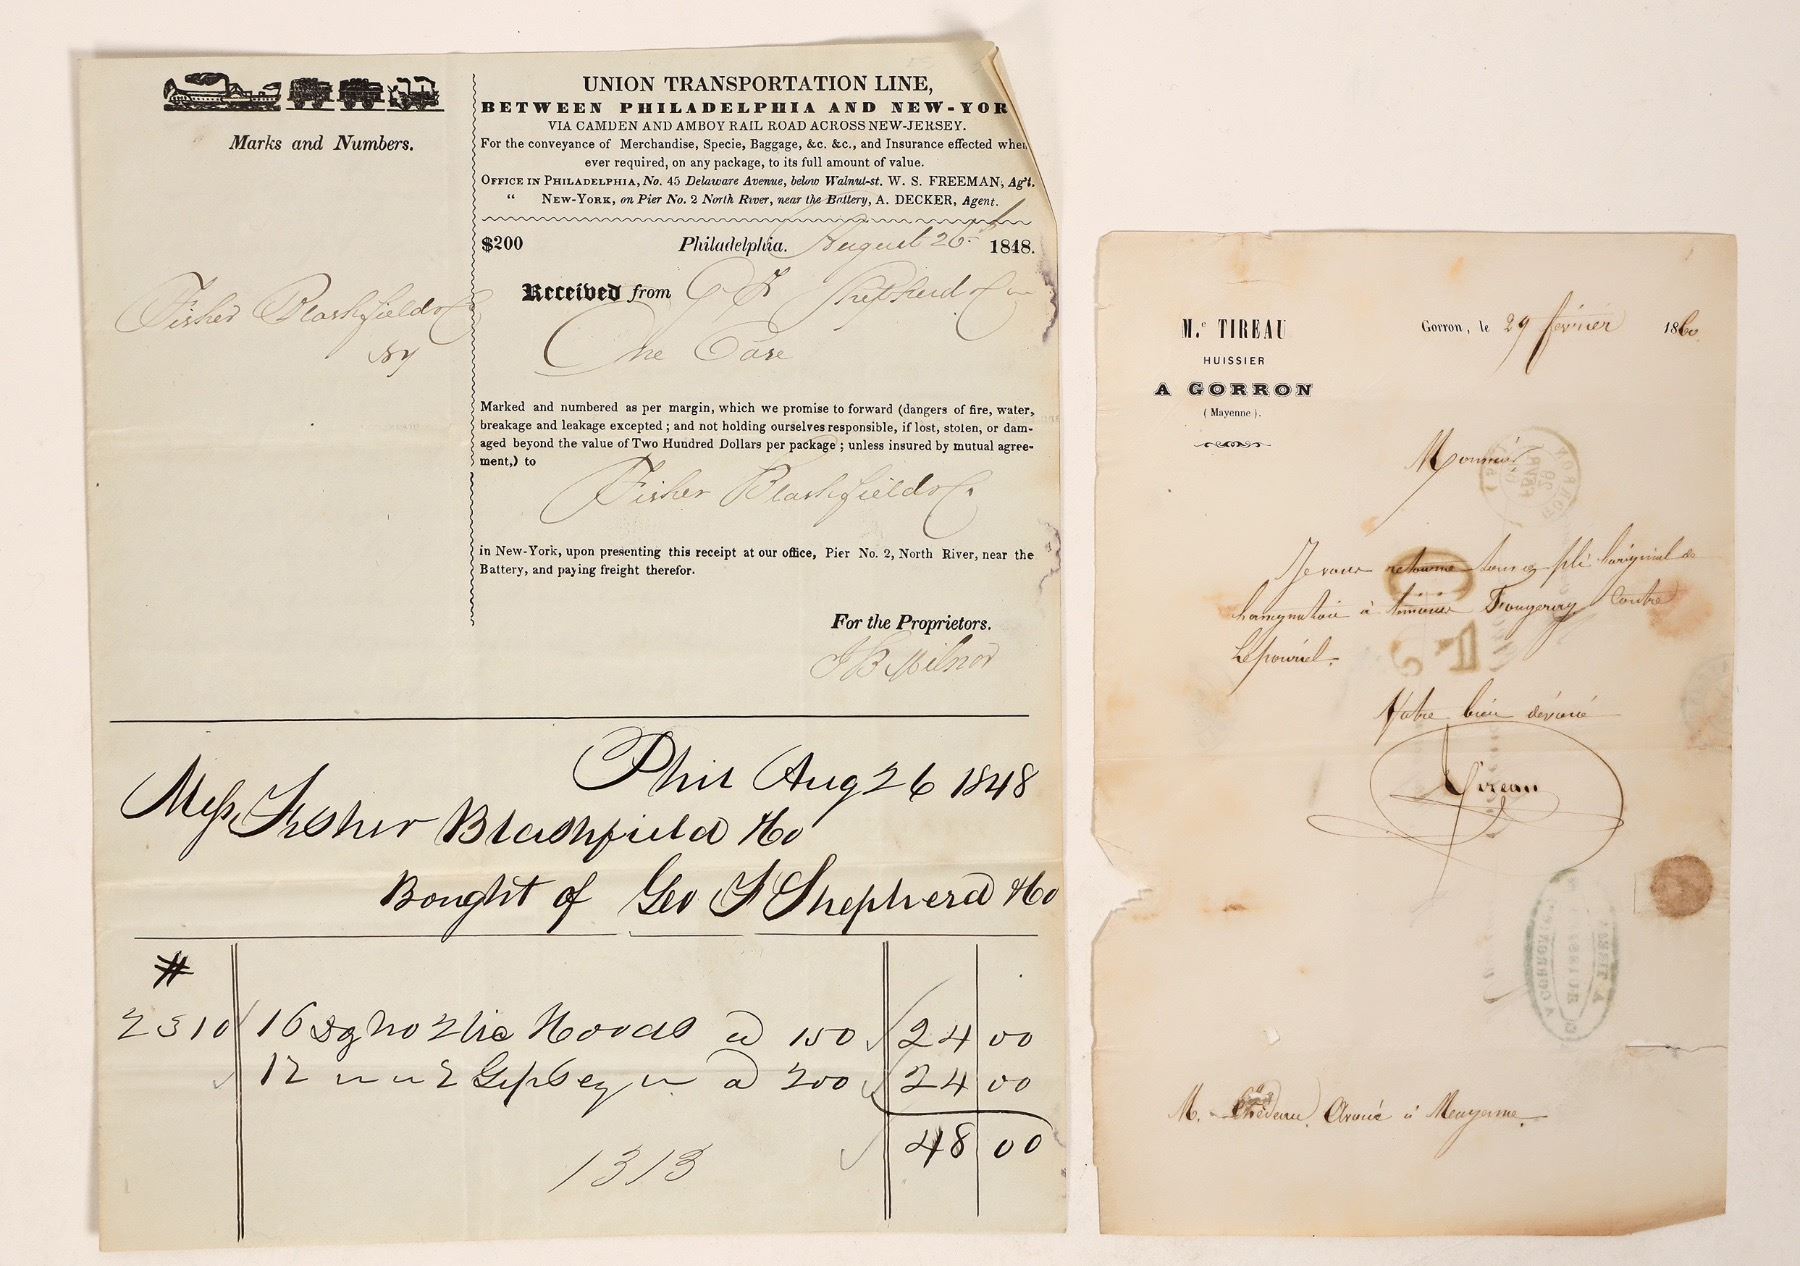 Marks and Numbers.
UNION TRANSPORTATION LINE,
BETWEEN PHILADELPHIA AND NEW-YOR
VIA CAMDEN AND AMBOY RAIL ROAD ACROSS NEW-JERSEY.
For the conveyance of Merchandise, Specie, Baggage, &c. &c., and Insurance effected when
ever required, on any package, to its full amount of value.
OFFICE IN PHILADELPHIA, No. 45 Delaware Avenue, below Walnut-st. W. S. FREEMAN, Ag't.
“ NEW-YORK, on Pier No. 2 North River, near the Battery, A. DECKER, Agent.
$200 Philadelphia. August 26 1848.
Received from G F Shepherd & Co
One Case
Fisher Blashfield & Co
NY
Marked and numbered as per margin, which we promise to forward (dangers of fire, water,
breakage and leakage excepted; and not holding ourselves responsible, if lost, stolen, or dam-
aged beyond the value of Two Hundred Dollars per package; unless insured by mutual agree-
ment,) to
Fisher Blashfield & Co
in New-York, upon presenting this receipt at our office, Pier No. 2, North River, near the
Battery, and paying freight therefor.
For the Proprietors.
J B Milnor
Phil Aug 26 1848
Mess Fisher Blashfield & Co
Bought of Geo F Shepherd & Co
#
2310 16 Hoods a 150 24 00
12 " " 2 Gipsey " a 200 24 00
48 00
1313
M.e TIREAU
HUISSIER
A GORRON
(Mayenne).
Gorron, le 29 février 1860.
Monsieur
Je vous retourne sous ce pli l'original de
à Fougeray Contre
Votre bien dévoué
Tireau
M. Chedeau, Avoué à Mayenne.